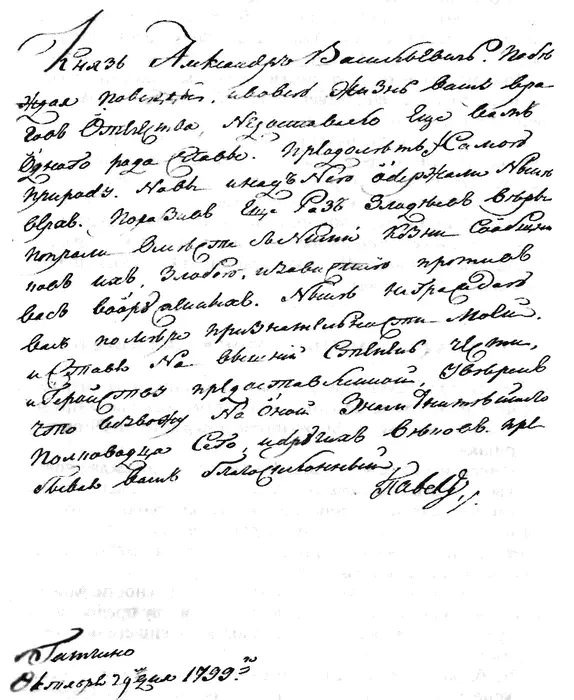 Князь Александръ Васильевичь. Побѣ
ждая повсюду, и вовсю жизнь вашу вра
говъ Отечества, Недоставало Еще вамъ
Однаго рода Славы. Преодолѣть и Самою
природу. Но вы и надъ Нею одержали Нынѣ
верьх. Поразивъ Еще Разъ Злодѣевъ Вѣры
попрали Вмѣсте съ Ними Козни Сообщни
ковъ ихъ, Злобою, и завистию противъ
васъ вооружинныхъ. Нынѣ награждаю
васъ помѣре признательности Моей.
и Ставя На вышний Степень Чести,
и Геройства предоставленной, Увѣренъ
что возвожу На Оной Знаменитѣйшаго
Полководца Сего, и другихъ вѣковъ. Пре
бываю Вамъ благосклонный
Павелъ
Гатчино
Октября 29го дня 1799го